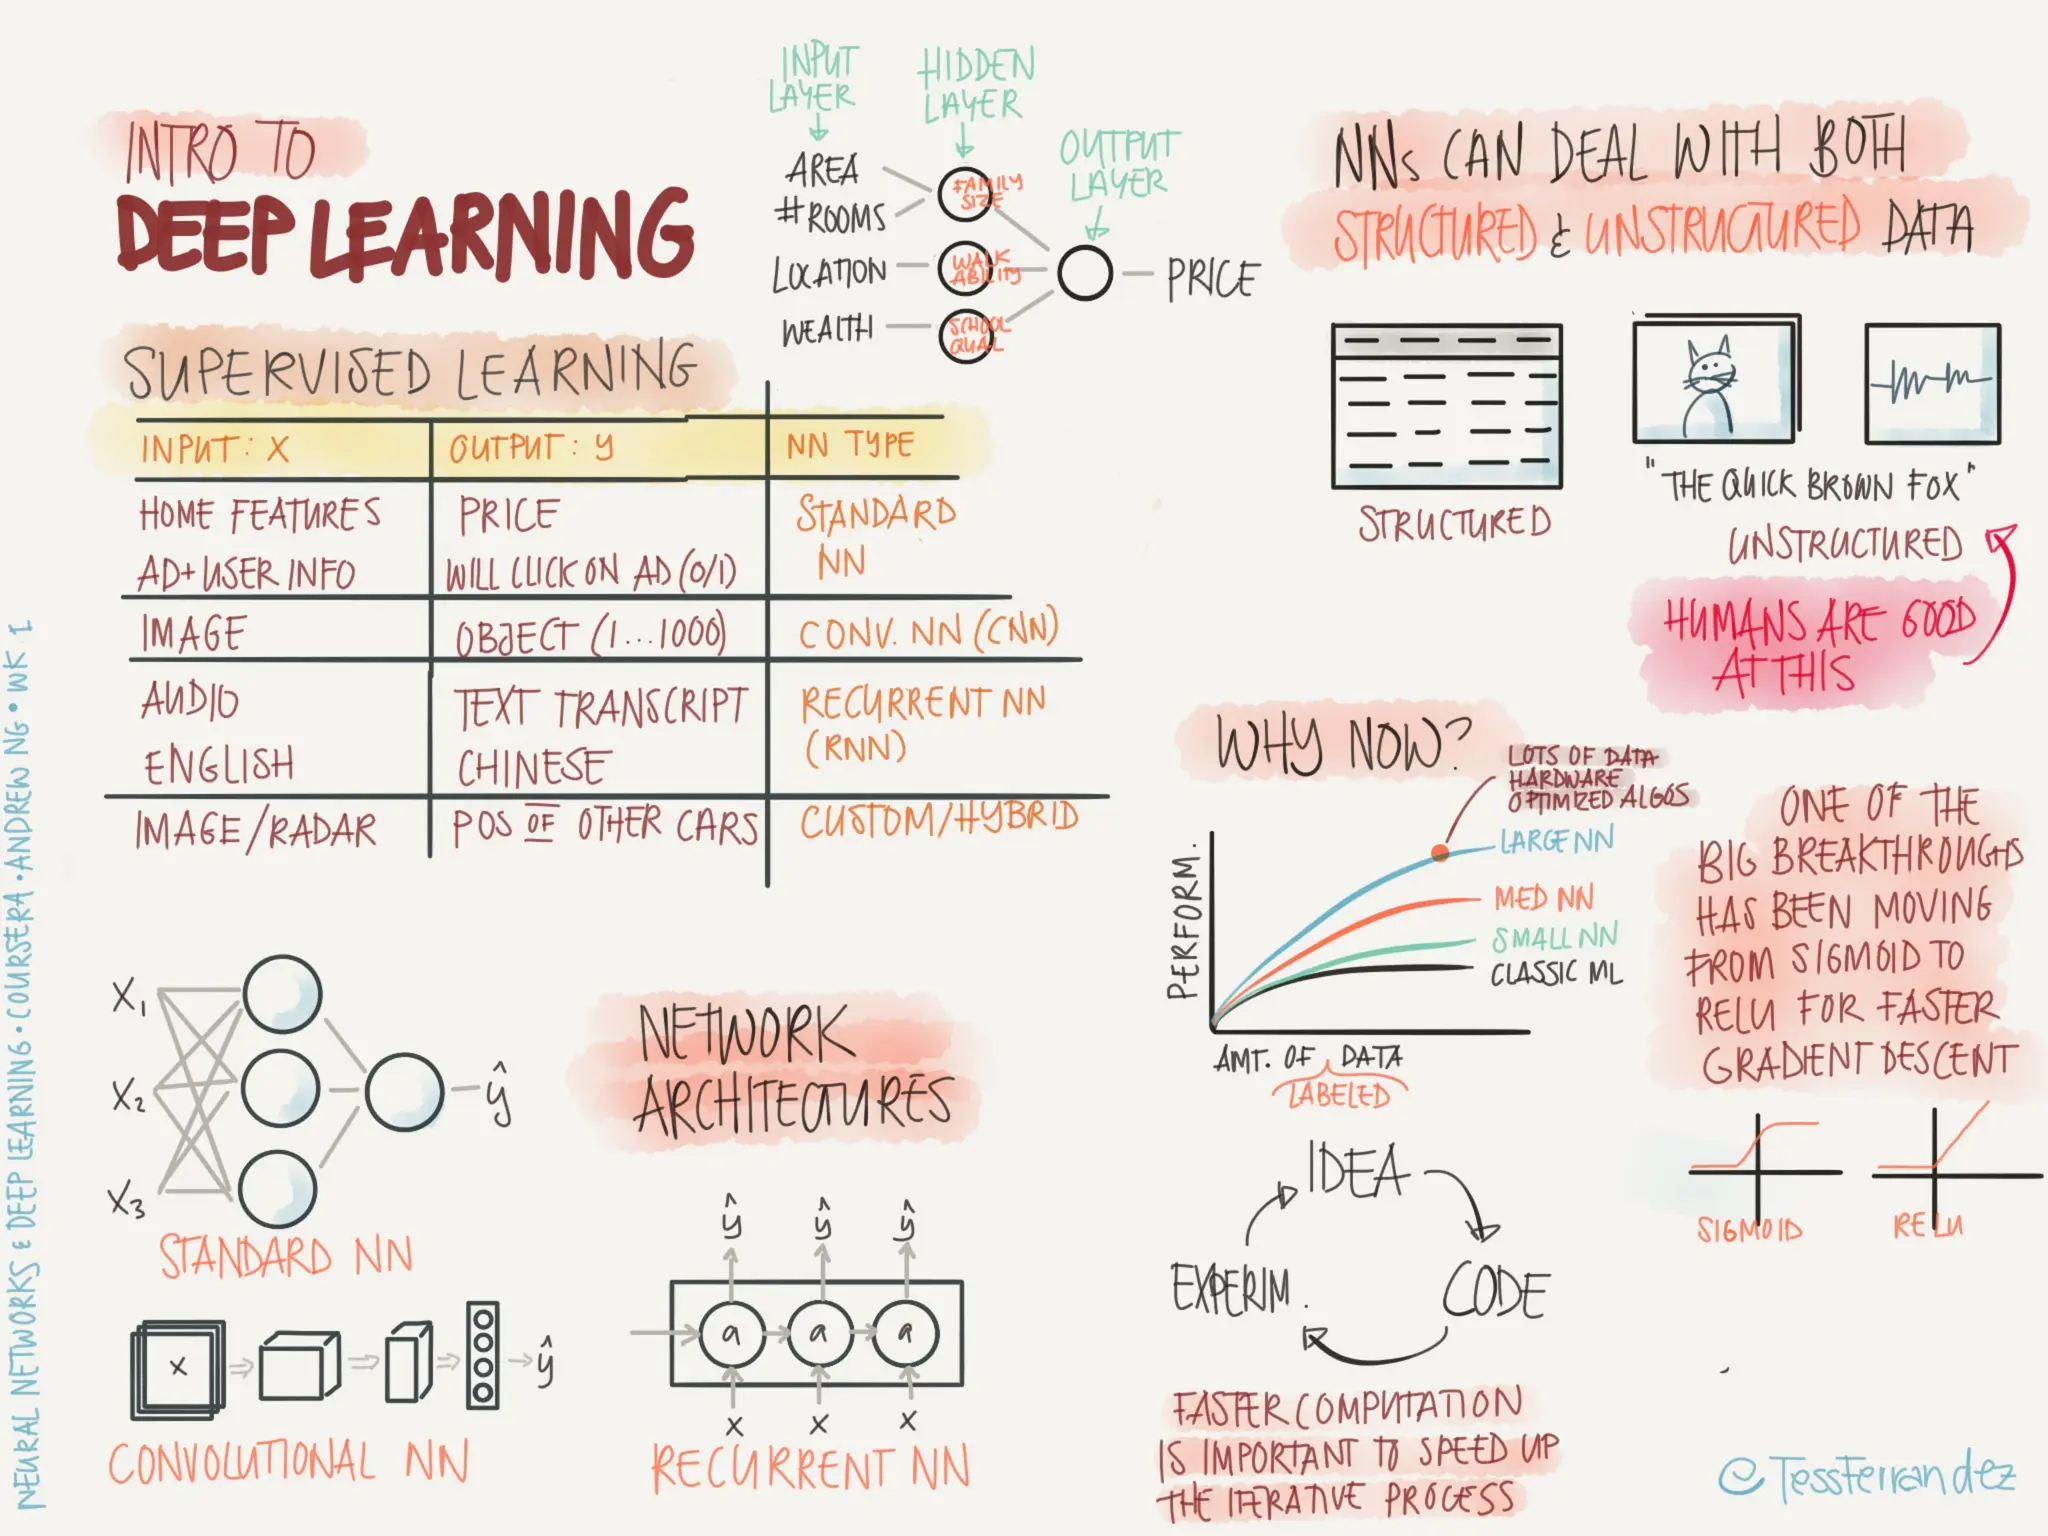 INTRO TO
DEEP LEARNING
INPUT
LAYER
HIDDEN
LAYER
OUTPUT
LAYER
AREA
#ROOMS
LOCATION
WEALTH
FAMILY
SIZE
WALK
ABILITY
SCHOOL
QUAL
PRICE
SUPERVISED LEARNING
INPUT: X OUTPUT: y NN TYPE
HOME FEATURES PRICE STANDARD
NN
AD+USER INFO WILL CLICK ON AD (0/1)
IMAGE OBJECT (1...1000) CONV. NN (CNN)
AUDIO TEXT TRANSCRIPT RECURRENT NN
(RNN)
ENGLISH CHINESE
IMAGE/RADAR POS OF OTHER CARS CUSTOM/HYBRID
NNs CAN DEAL WITH BOTH
STRUCTURED & UNSTRUCTURED DATA
STRUCTURED
"THE QUICK BROWN FOX"
UNSTRUCTURED
HUMANS ARE GOOD
AT THIS
WHY NOW?
LOTS OF DATA
HARDWARE
OPTIMIZED ALGOS
LARGE NN
MED NN
SMALL NN
CLASSIC ML
PERFORM.
AMT. OF DATA
LABELED
ONE OF THE
BIG BREAKTHROUGHS
HAS BEEN MOVING
FROM SIGMOID TO
RELU FOR FASTER
GRADIENT DESCENT
SIGMOID
RELU
IDEA
CODE
EXPERIM.
FASTER COMPUTATION
IS IMPORTANT TO SPEED UP
THE ITERATIVE PROCESS
NETWORK
ARCHITECTURES
X1
X2
X3
ŷ
STANDARD NN
X
ŷ
CONVOLUTIONAL NN
ŷ ŷ ŷ
a a a
X X X
RECURRENT NN
NEURAL NETWORKS & DEEP LEARNING • COURSERA • ANDREW NG • WK 1
@TessFerrandez